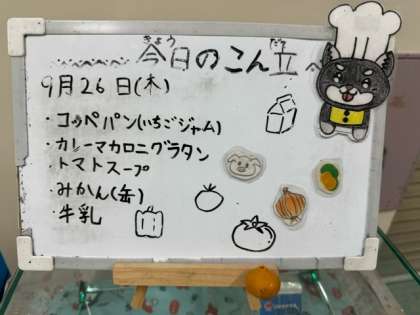 きょう だて
今日のこん立
9月26日(木)
・コッペパン(いちごジャム)
・カレーマカロニグラタン
・トマトスープ
・みかん(缶)
・牛乳